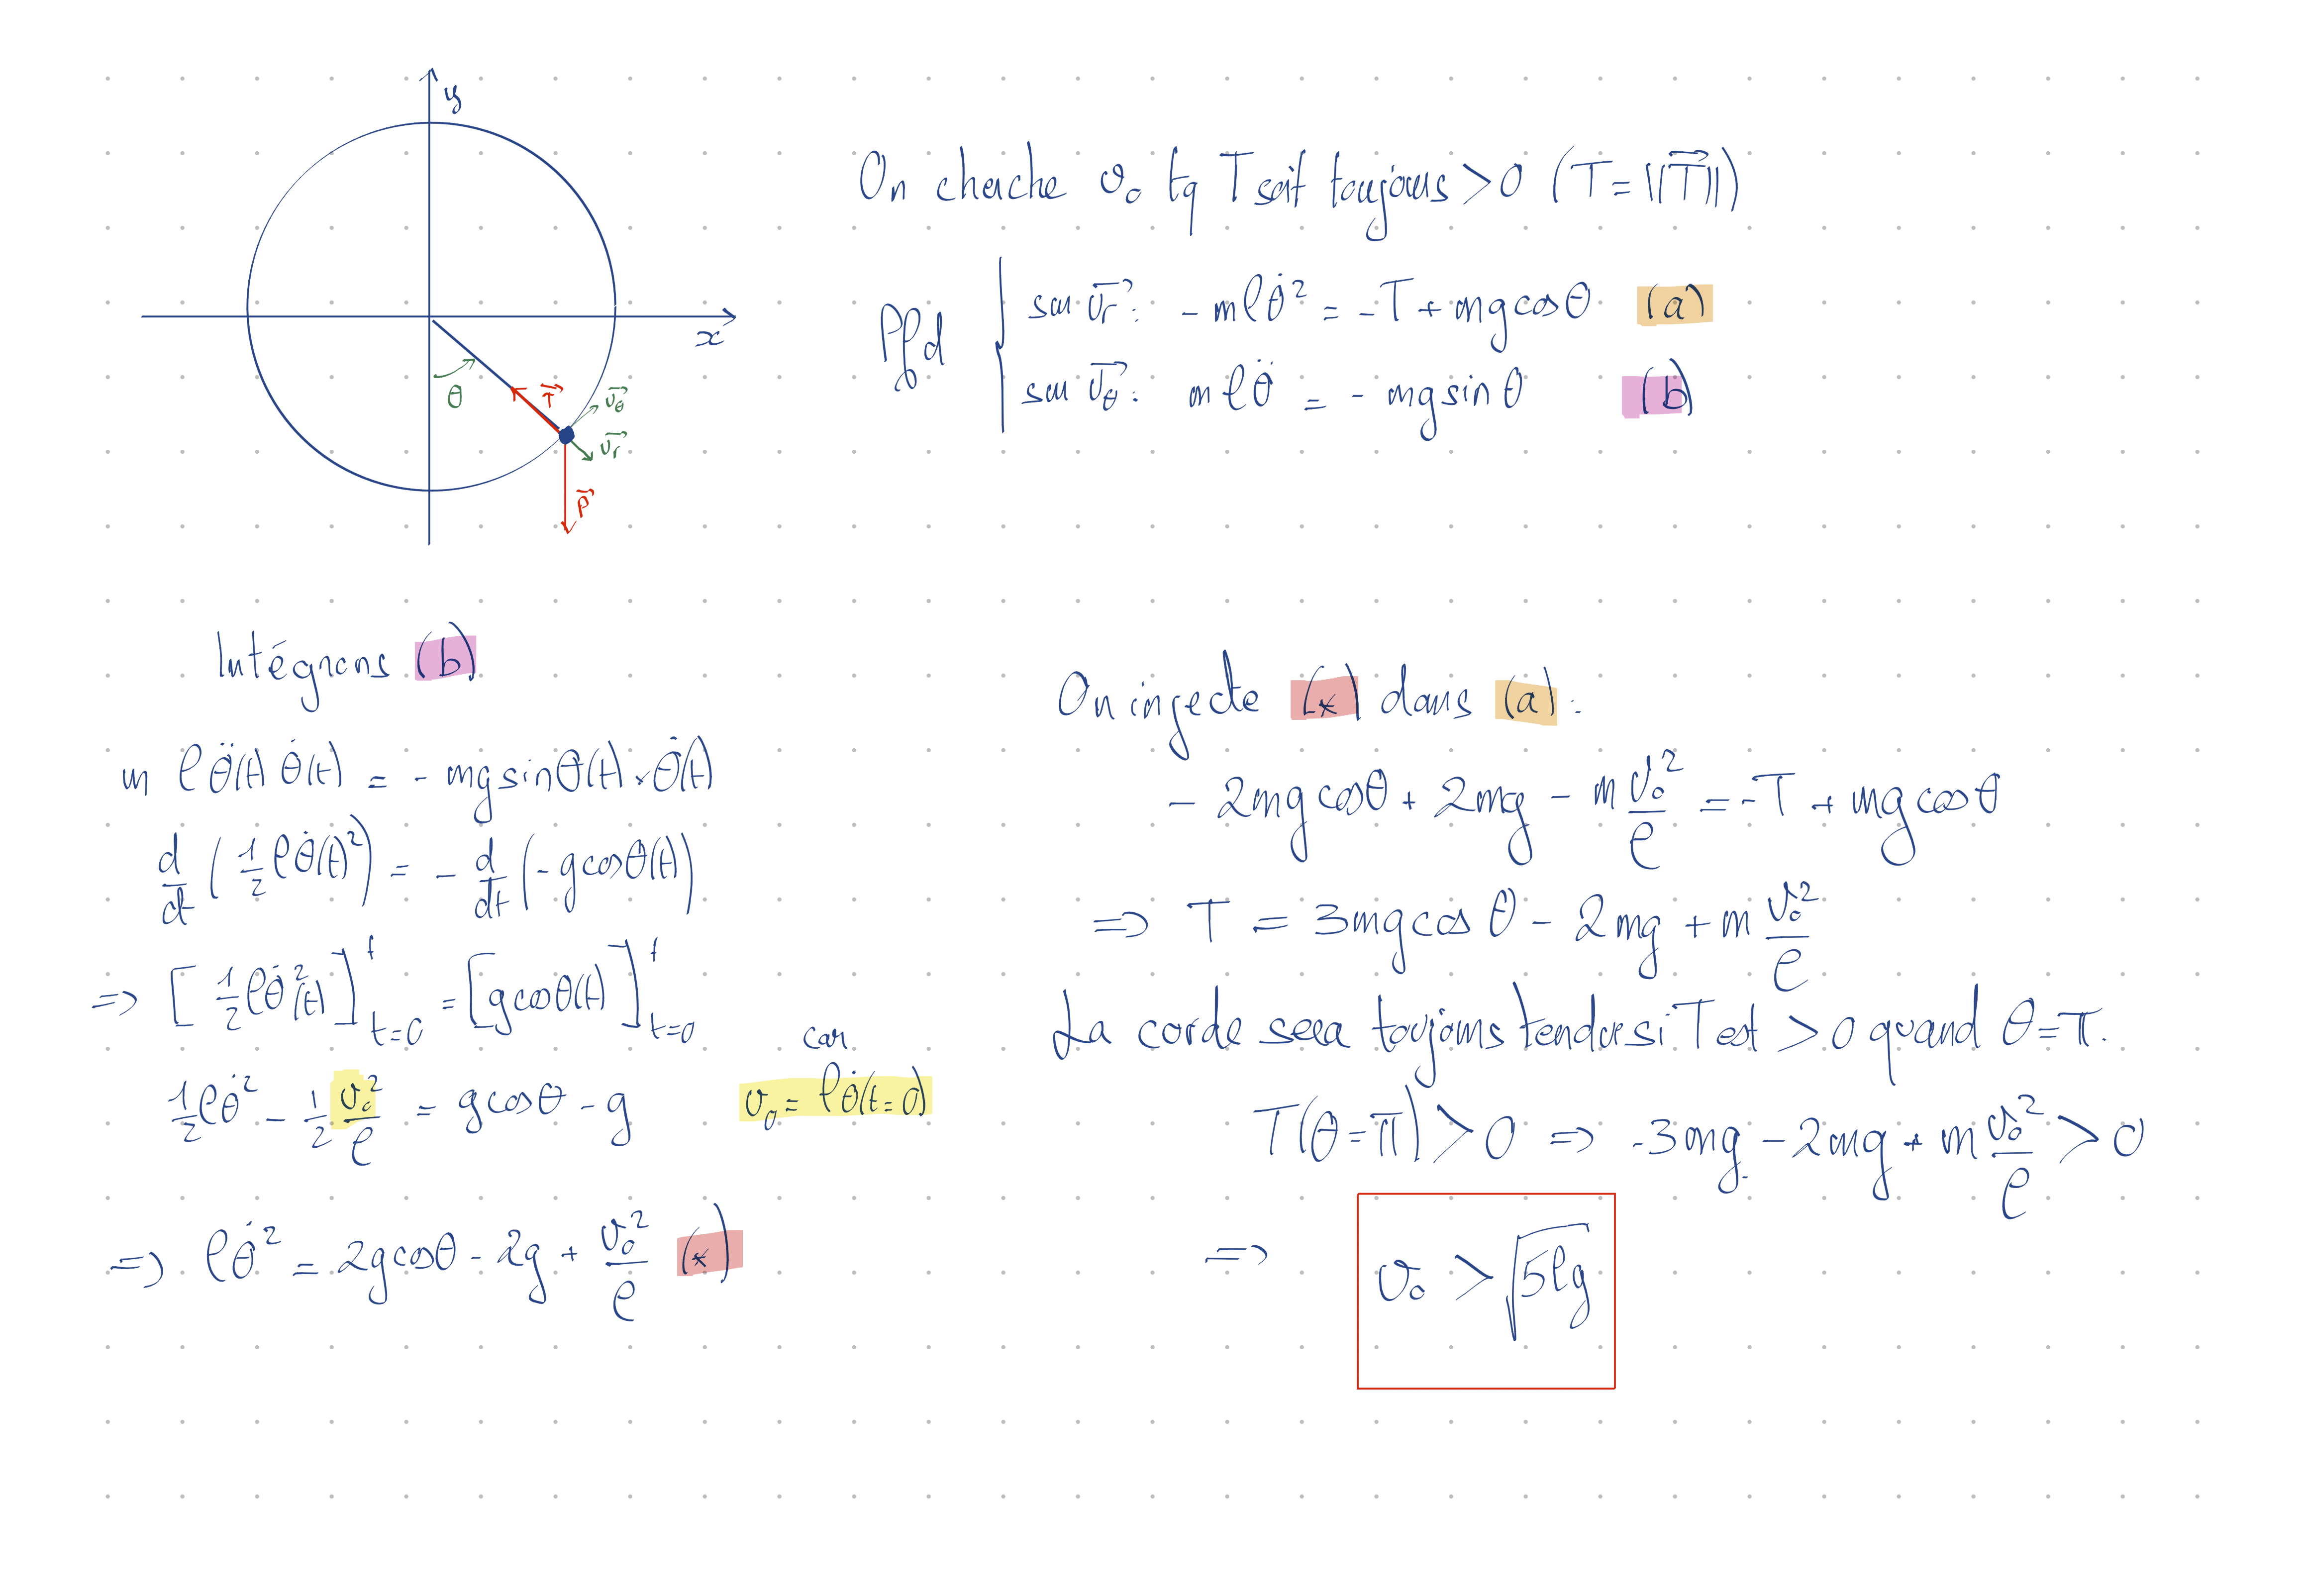 y
On cherche v₀ tq T soit toujours > 0 (T = ||T⃗||)
x
Pfd
sur u⃗r : - mlθ̇² = -T + mg cosθ (a)
sur u⃗θ : mlθ̈ = - mg sinθ (b)
θ
T⃗
u⃗θ
u⃗r
P⃗
Intégrons (b)
m lθ̈(t) θ̇(t) = - mg sinθ(t) × θ̇(t)
d/dt (1/2 lθ̇(t)²) = - d/dt (-g cosθ(t))
=> [1/2 lθ̇²(t)]ᵗ_{t=0} = [g cosθ(t)]ᵗ_{t=0}
1/2 lθ̇² - 1/2 v₀²/l = g cosθ - g car v₀ = lθ̇(t=0)
=> lθ̇² = 2g cosθ - 2g + v₀²/l (*)
On injecte (*) dans (a) :
- 2mg cosθ + 2mg - m v₀²/l = -T + mg cosθ
=> T = 3mg cosθ - 2mg + m v₀²/l
La corde sera toujours tendue si T est > 0 quand θ = π.
T(θ=π) > 0 => -3mg - 2mg + m v₀²/l > 0
=> v₀ > √(5lg)